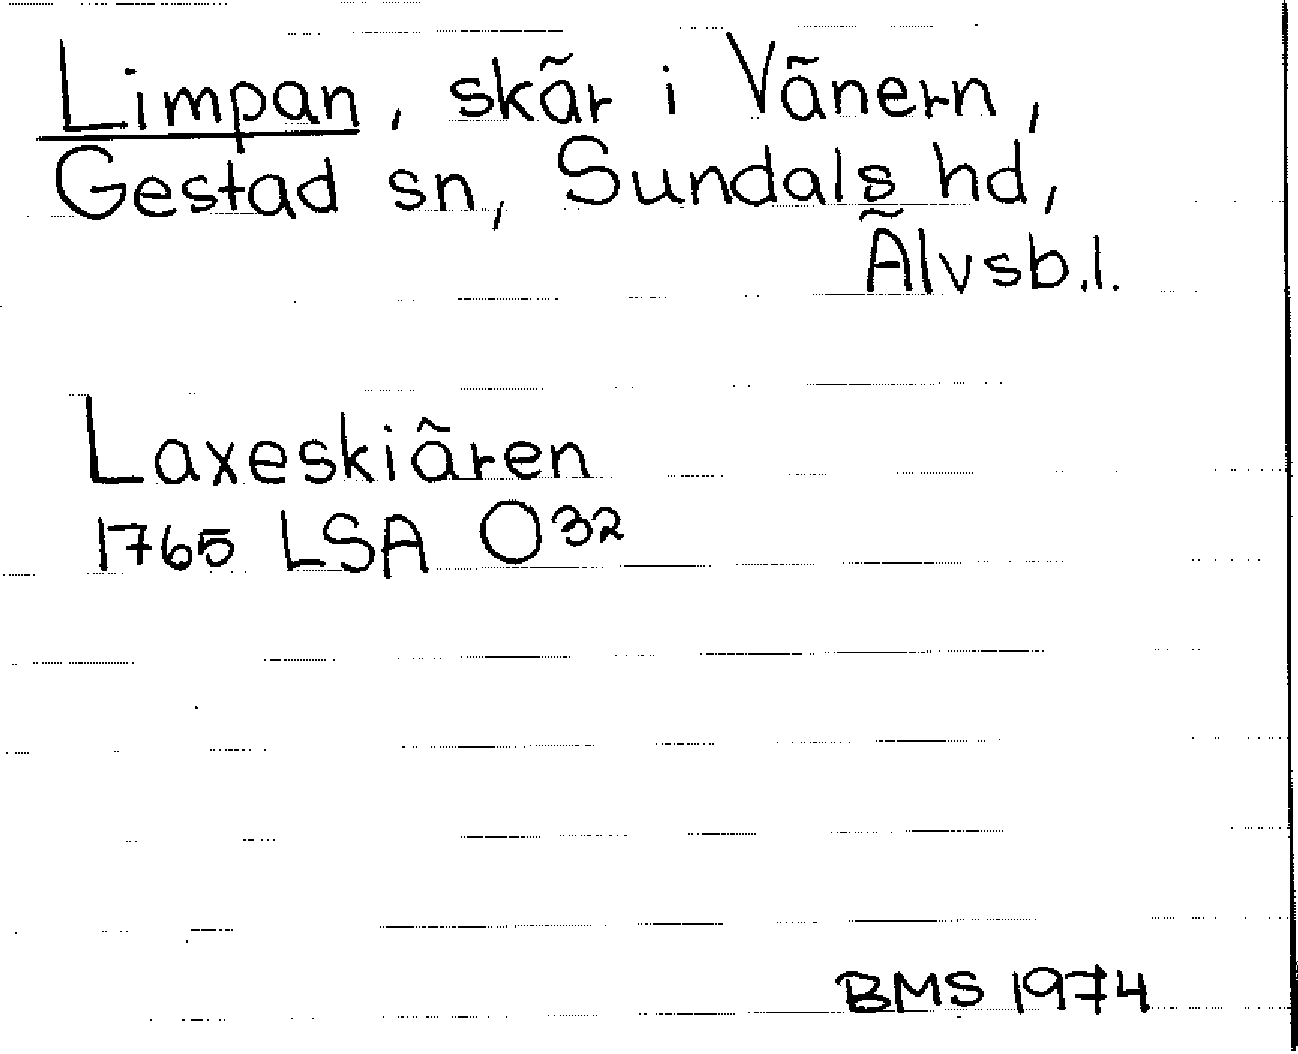 Limpan, skär i Vänern,
Gestad sn, Sundals hd,
Älvsb.l.
Laxeskiären
1765 LSA O32
BMS 1974